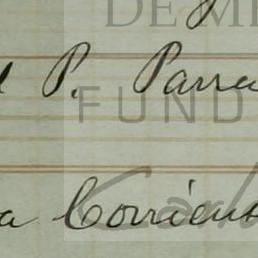 DE ME
P. Parra
FUND
a Corrient